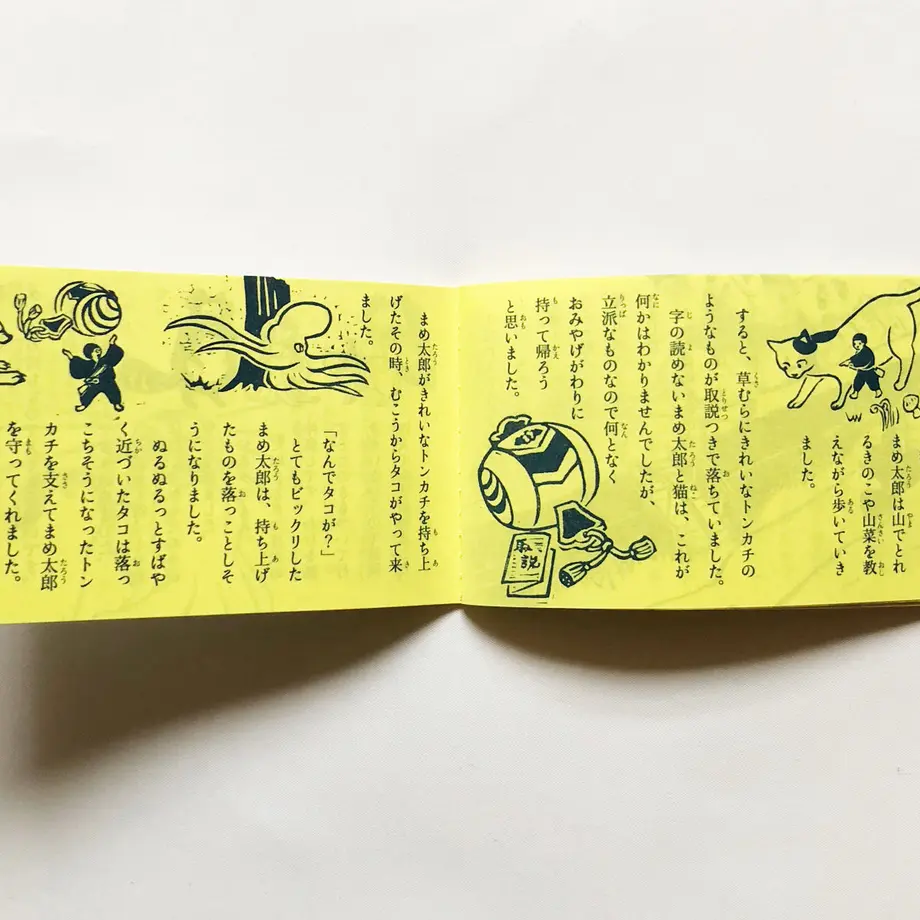 まめ太郎は山でとれ
るきのこや山菜を教
えながら歩いていき
ました。
すると、草むらにきれいなトンカチの
ようなものが取説つきで落ちていました。
字の読めないまめ太郎と猫は、これが
何かはわかりませんでしたが、
立派なものなので何となく
おみやげがわりに
持って帰ろう
と思いました。
取説
まめ太郎がきれいなトンカチを持ち上
げたその時、むこうからタコがやって来
ました。
「なんでタコが?」
とてもビックリした
まめ太郎は、持ち上げ
たものを落っことしそ
うになりました。
ぬるぬるっとすばや
く近づいたタコは落っ
こちそうになったトン
カチを支えてまめ太郎
を守ってくれました。